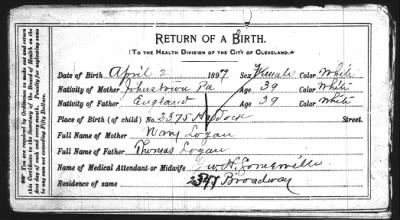 RETURN OF A BIRTH.
[TO THE HEALTH DIVISION OF THE CITY OF CLEVELAND.]
Date of Birth April 2 1897 Sex Female Color White
Nativity of Mother Johnstown Pa Age 39 Color White
Nativity of Father England Age 39 Color White
Place of Birth (of child) No. 2375 Street.
Full Name of Mother Mary Logan
Full Name of Father Thomas Logan
Name of Medical Attendant or Midwife W. H. Somerville
Residence of same 2347 Broadway
You are required by Ordinance to make out and return
this Certificate to the Secretary of the Board of Health on the
first day of each and every month. Penalty for neglecting same
to any sum not exceeding Fifty Dollars.